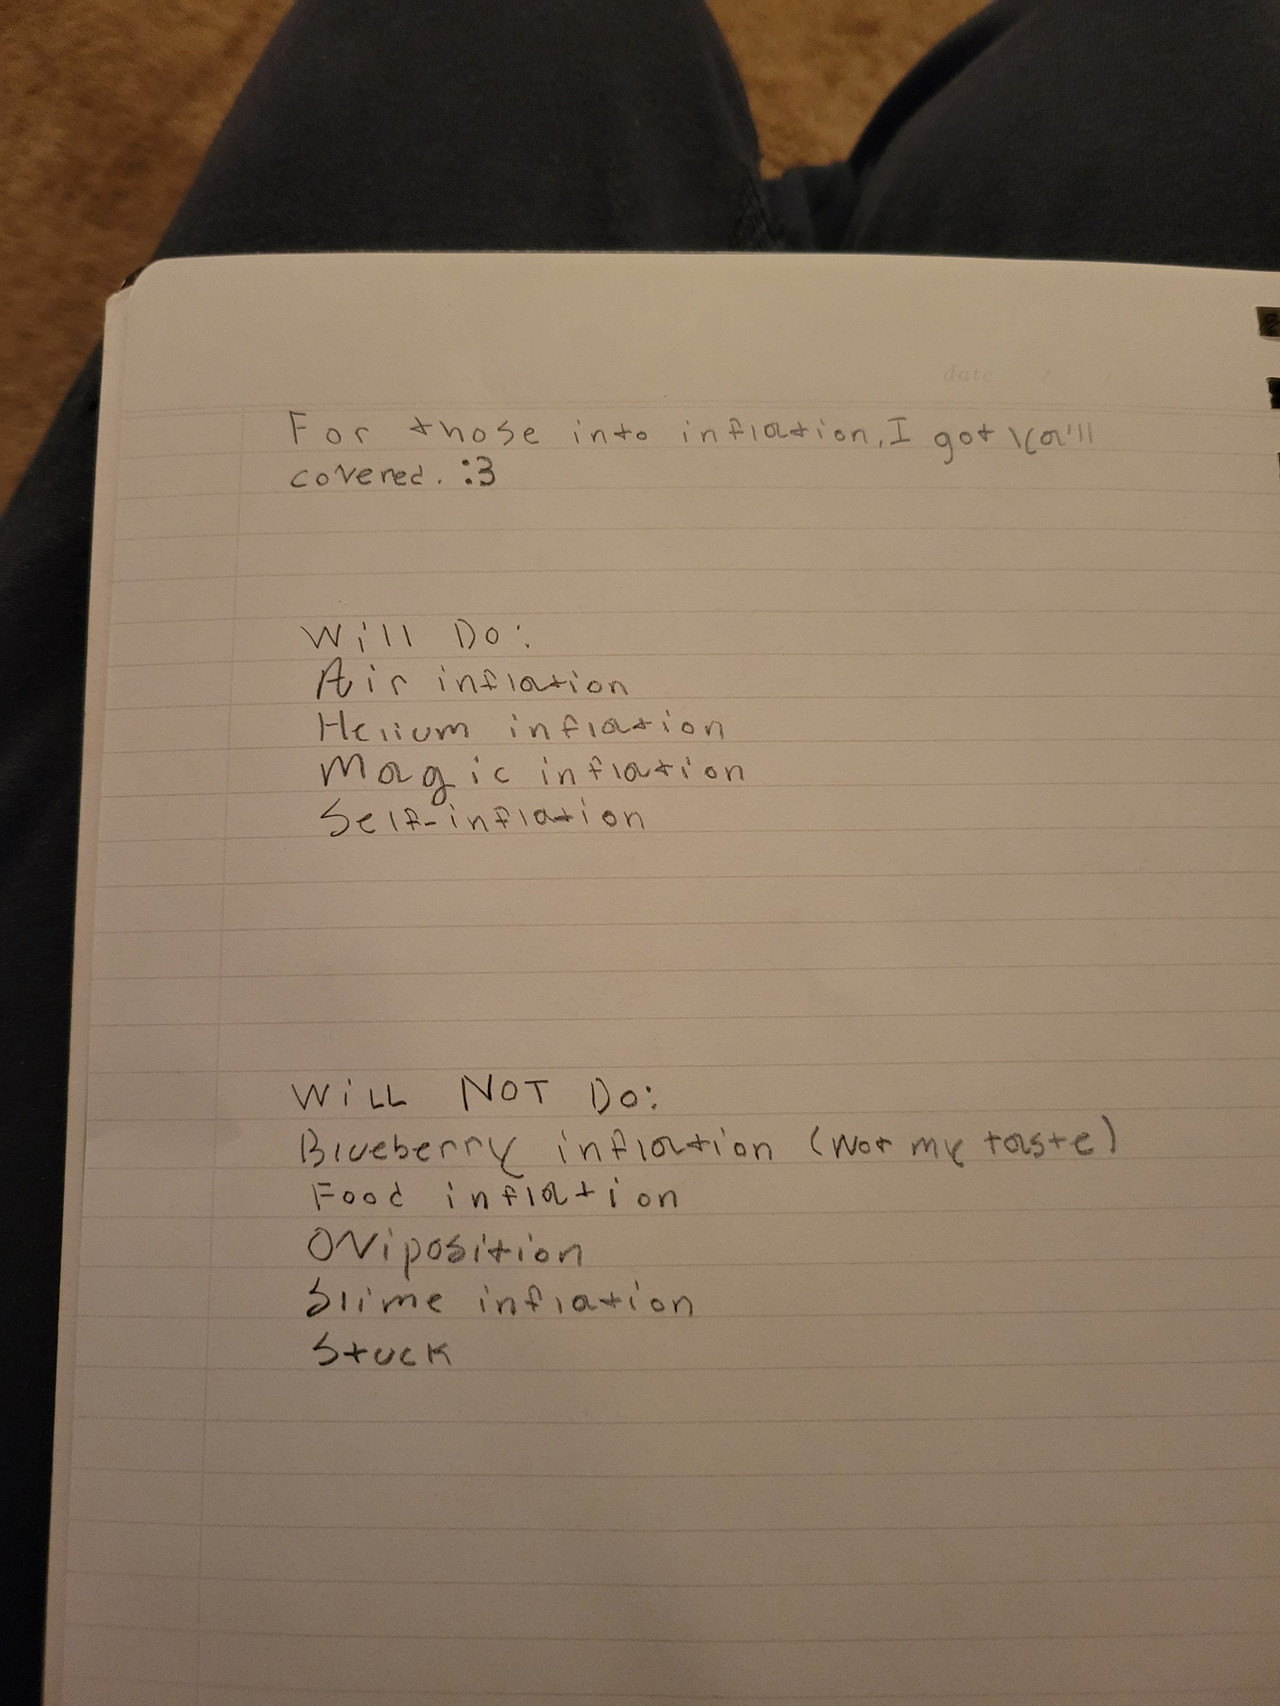 date / /
For those into inflation, I got ya'll
covered. :3
Will Do:
Air inflation
Helium inflation
Magic inflation
Self-inflation
WiLL NOT Do:
Blueberry inflation (Not my taste)
Food inflation
Oviposition
Slime inflation
Stuck